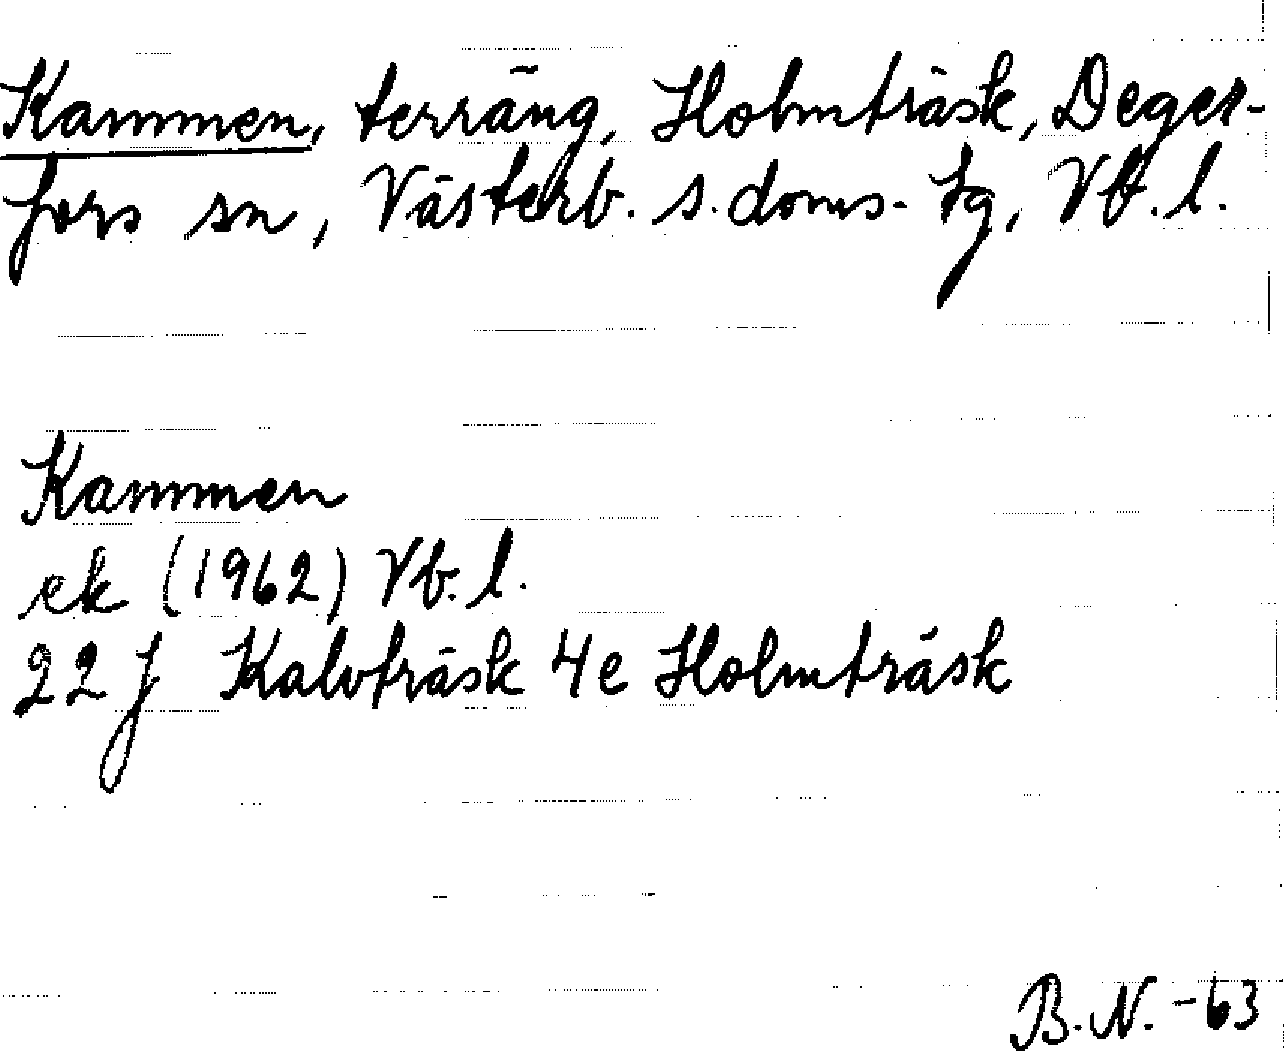 Kammen, terräng, Holmträsk, Deger-
fors sn, Västerb. s. doms. tg, Vb. l.
Kammen
ek (1962) Vb. l.
22 J Kalvträsk 4e Holmträsk
B.N. -63